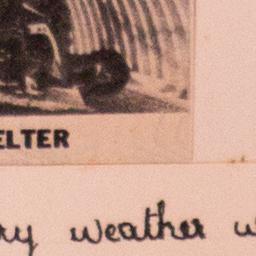 ELTER
ry weather w